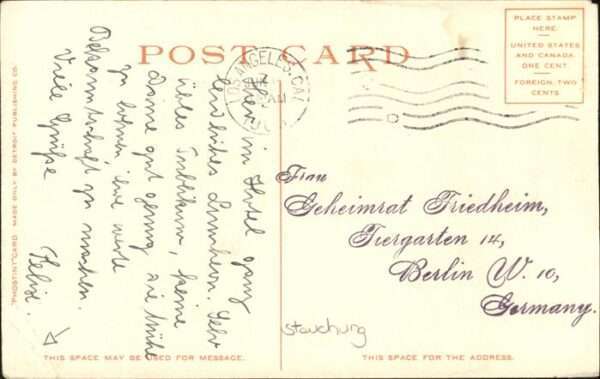 POST CARD
PLACE STAMP
HERE.
UNITED STATES
AND CANADA
ONE CENT
FOREIGN, TWO
CENTS
LOS ANGELES, CAL
Frau
Geheimrat Friedheim,
Tiergarten 14,
Berlin W. 10,
Germany.
im Hotel ganz
Sehr
keine
Dame gut genug die Mühe
zu lohnen ihre werte
Bekanntschaft zu machen.
Viele Grüße
Felix.
stauchung
THIS SPACE MAY BE USED FOR MESSAGE.
THIS SPACE IS FOR THE ADDRESS.
"PHOSTINT" CARD. MADE ONLY BY DETROIT PUBLISHING CO.